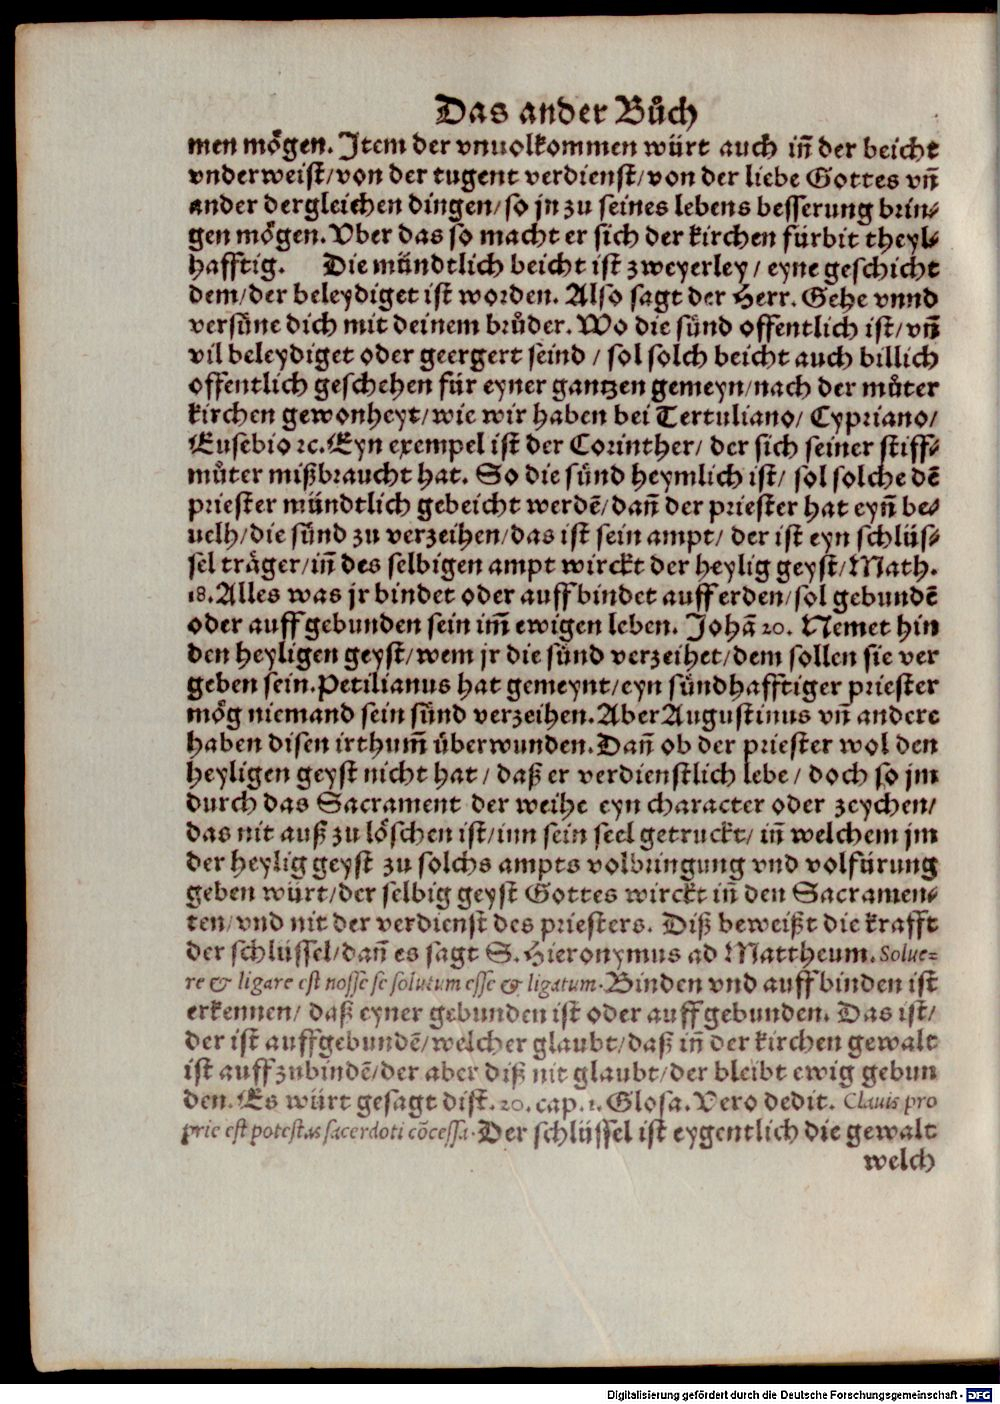 Das ander Bůch
men mögen. Item der vnuolkommen würt auch iñ der beicht
vnderweist/von der tugent verdienst/von der liebe Gottes vñ
ander dergleichen dingen/so jn zu seines lebens besserung brin-
gen mögen. Vber das so macht er sich der kirchen fürbit theyl-
hafftig. Die mündtlich beicht ist zweyerley/ eyne geschicht
dem/der beleydiget ist worden. Also sagt der Herr. Gehe vnnd
versüne dich mit deinem brůder. Wo die sünd offentlich ist/vñ
vil beleydiget oder geergert seind / sol solch beicht auch billich
offentlich geschehen für eyner gantzen gemeyn/nach der můter
kirchen gewonheyt/wie wir haben bei Tertuliano/ Cypriano/
Eusebio ꝛc. Eyn exempel ist der Corinther/ der sich seiner stiff-
můter mißbraucht hat. So die sünd heymlich ist/ sol solche dē
priester mündtlich gebeicht werdē/dañ der priester hat eyñ be-
uelh/die sünd zu verzeihen/das ist sein ampt/ der ist eyn schlüs-
sel träger/iñ des selbigen ampt wirckt der heylig geyst/Math.
18. Alles was jr bindet oder auffbindet auff erden/sol gebundē
oder auffgebunden sein im̄ ewigen leben. Johā 20. Nemet hin
den heyligen geyst/wem jr die sünd verzeihet/dem sollen sie ver
geben sein. Petilianus hat gemeynt/eyn sündhafftiger priester
mög niemand sein sünd verzeihen. Aber Augustinus vñ andere
haben disen irthum̄ überwunden. Dañ ob der priester wol den
heyligen geyst nicht hat / daß er verdienstlich lebe / doch so jm
durch das Sacrament der weihe eyn character oder zeychen/
das nit auß zu löschen ist/inn sein seel getruckt/ iñ welchem jm
der heylig geyst zu solchs ampts volbringung vnd volfürung
geben würt/der selbig geyst Gottes wirckt iñ den Sacramen-
ten/vnd nit der verdienst des priesters. Diß beweißt die krafft
der schlüssel/dañ es sagt S. Hieronymus ad Mattheum. Solue-
re & ligare est nosse se solutum esse & ligatum. Binden vnd auffbinden ist
erkennen/ daß eyner gebunden ist oder auffgebunden. Das ist/
der ist auffgebundē/welcher glaubt/daß iñ der kirchen gewalt
ist auffzubindē/der aber diß nit glaubt/der bleibt ewig gebun
den. Es würt gesagt dist. 20. cap. 1. Glosa. Vero dedit. Clauis pro
prie est potestas sacerdoti cōcessa. Der schlüssel ist eygentlich die gewalt
welch
Digitalisierung gefördert durch die Deutsche Forschungsgemeinschaft - DFG